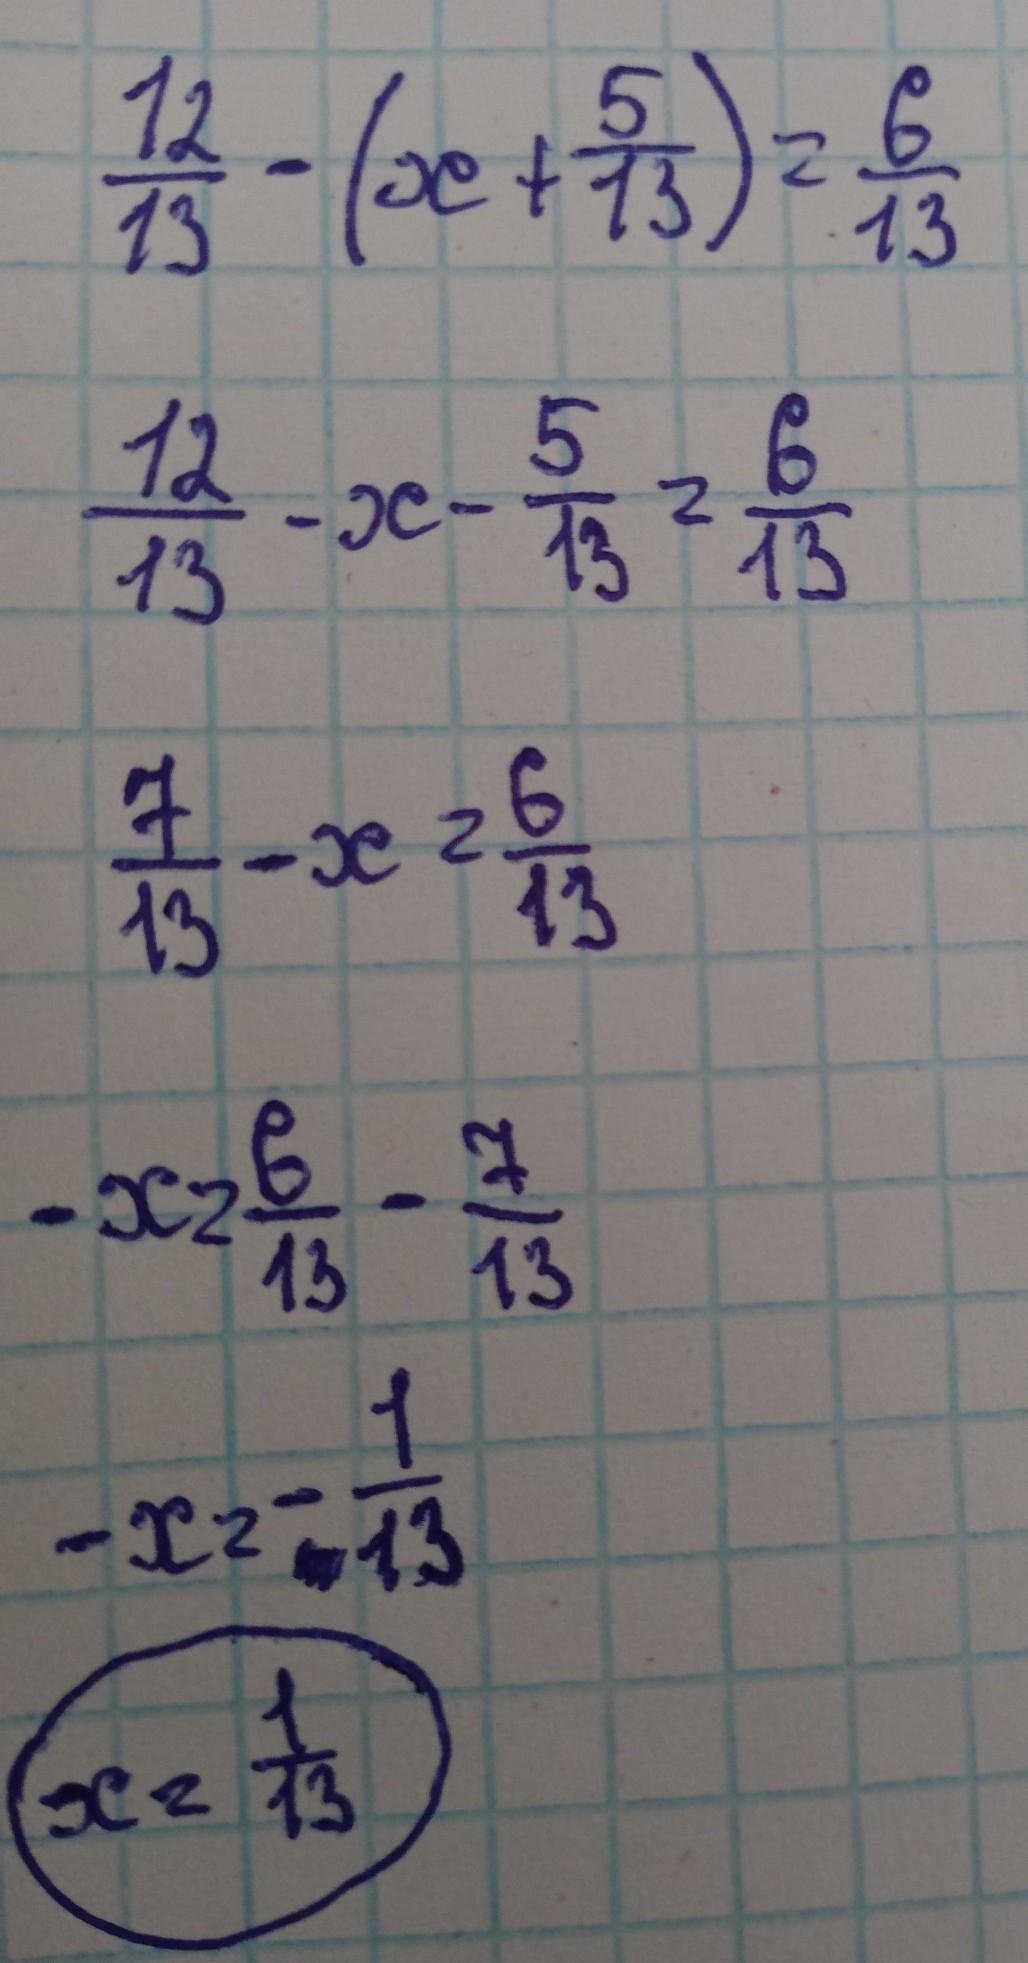 12/13 - (x + 5/13) = 6/13
12/13 - x - 5/13 = 6/13
7/13 - x = 6/13
- x = 6/13 - 7/13
- x = - 1/13
x = 1/13